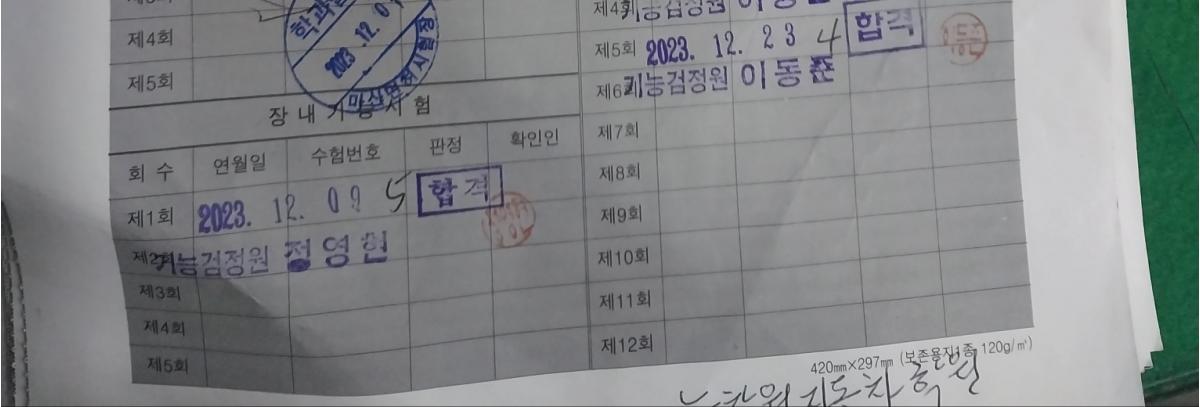 제4회
제5회
학과
2023. 12. 0
마산면허시험장
장내기능시험
회 수 연월일 수험번호 판정 확인인
제1회 2023. 12. 09 5 합격
제2회 기능검정원 정영현
제3회
제4회
제5회
제4회 기능검정원 이동
제5회 2023. 12. 23 4 합격
제6회 기능검정원 이동준
제7회
제8회
제9회
제10회
제11회
제12회
420㎜×297㎜ (보존용지1종 120g/㎡)
자동차학원